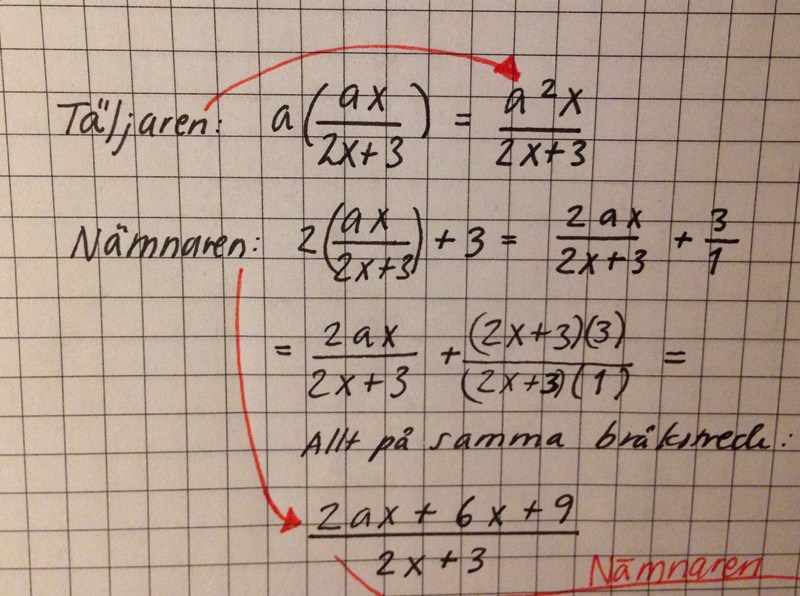 Täljaren: a(ax/2x+3) = a²x/2x+3
Nämnaren: 2(ax/2x+3) + 3 = 2ax/2x+3 + 3/1
= 2ax/2x+3 + (2x+3)(3)/(2x+3)(1) =
Allt på samma bråkstreck:
2ax + 6x + 9/2x+3
Nämnaren